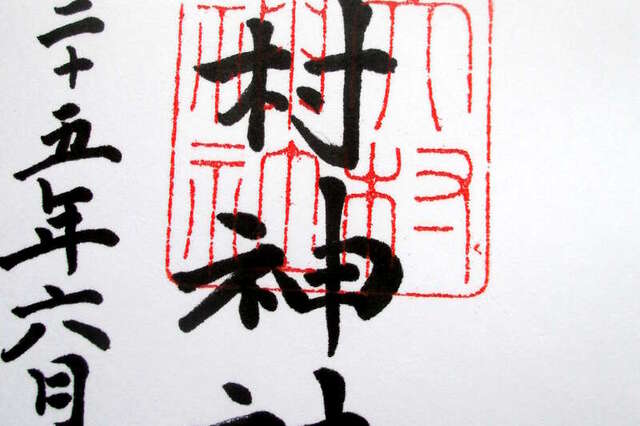 大村
村神
二十五年六月